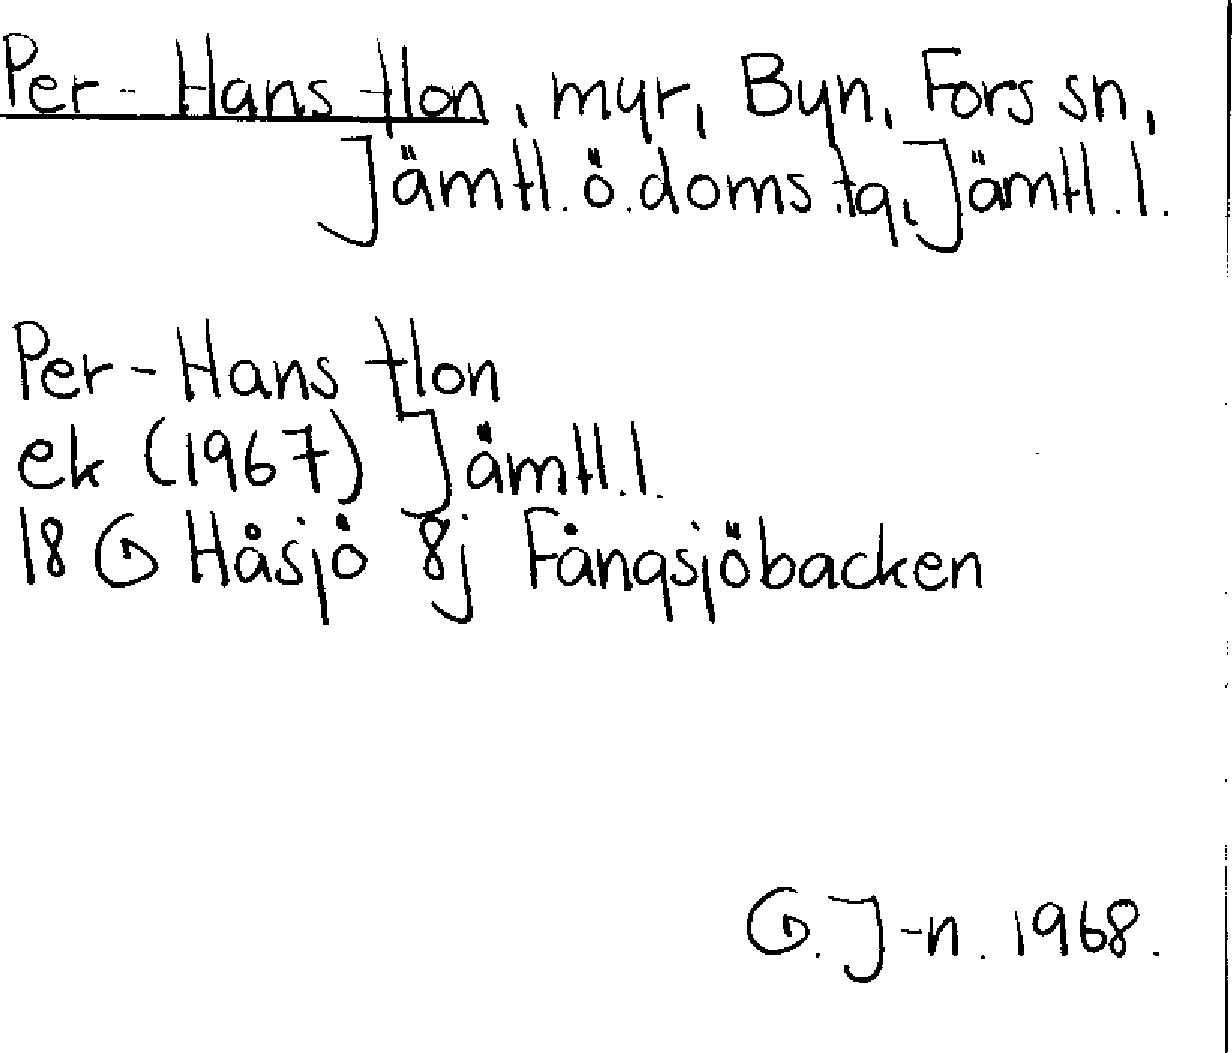 Per-Hans flon, myr, Byn, Fors sn,
Jämtl.ö.doms.tg, Jämtl.l.
Per-Hans flon
ek (1967) Jämtl.l.
18 G Håsjö 8j Fångsjöbacken
G.J-n. 1968.